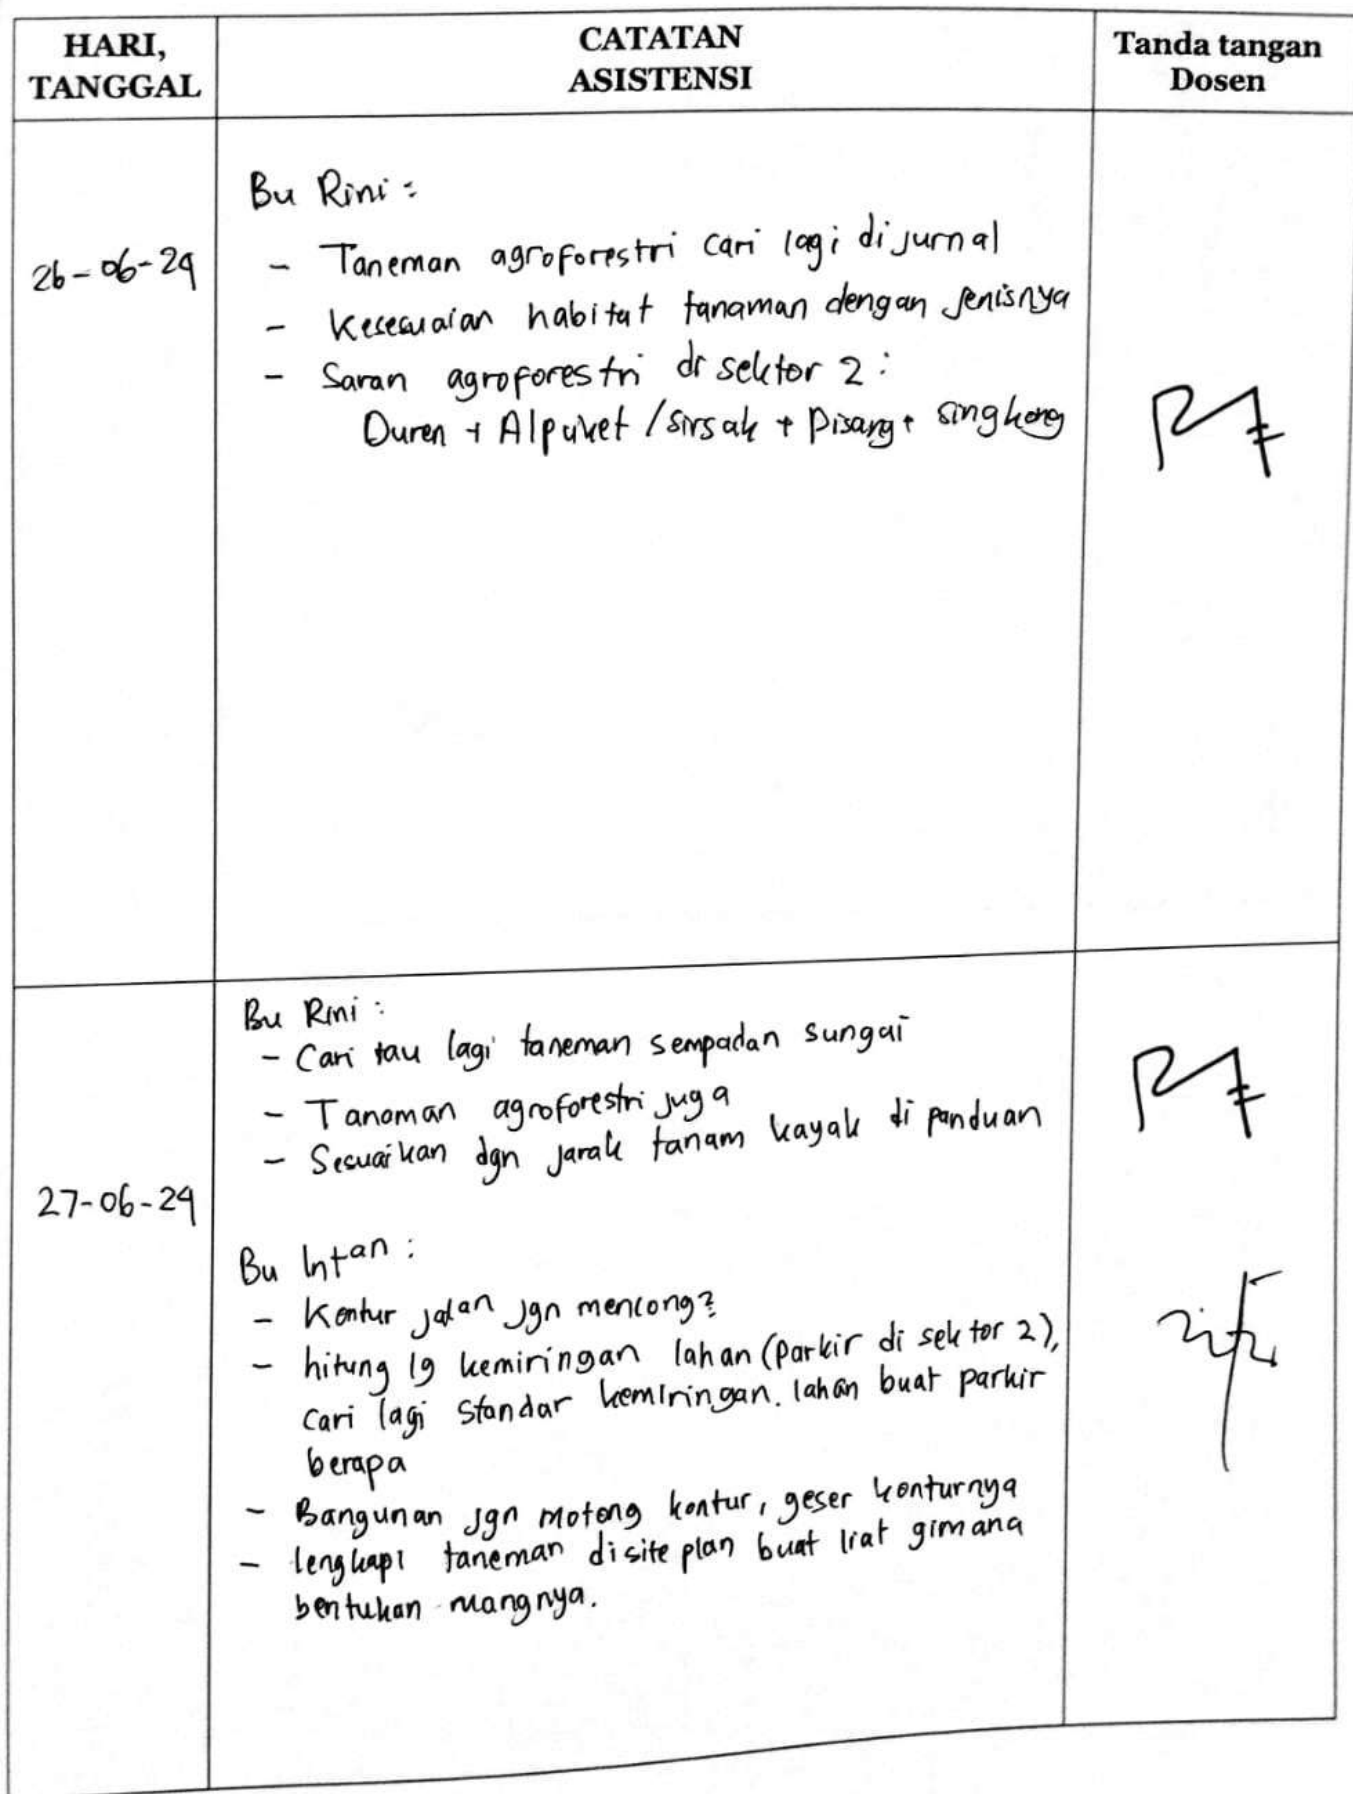 HARI,
TANGGAL
CATATAN
ASISTENSI
Tanda tangan
Dosen
26-06-24
Bu Rini :
- Taneman agroforestri cari lagi di jurnal
- Kesesuaian habitat tanaman dengan jenisnya
- Saran agroforestri di sektor 2 :
Duren + Alpuket / sirsak + pisang + singkong
27-06-24
Bu Rini :
- Cari tau lagi taneman sempadan sungai
- Tanaman agroforestri juga
- Sesuaikan dgn jarak tanam kayak di panduan
Bu Intan :
- Kontur jalan jgn mencong2
- hitung lg kemiringan lahan (parkir di sektor 2),
cari lagi standar kemiringan. lahan buat parkir
berapa
- Bangunan jgn motong kontur, geser konturnya
- lengkapi taneman di site plan buat liat gimana
bentukan ruangnya.